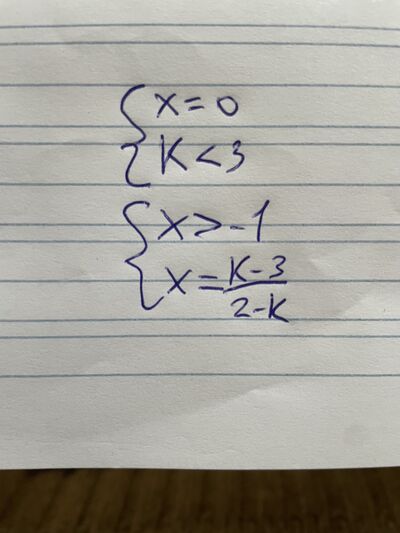 { x = 0
K < 3
{ x > -1
x = (K-3)/(2-K)